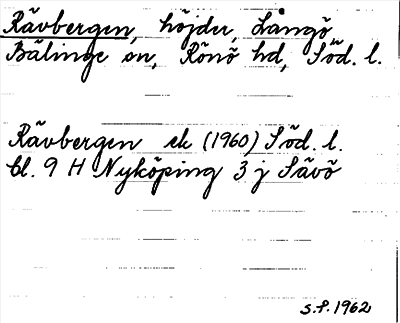 Rävbergen, höjder, Långö,
Bälinge sn, Rönö hd, Söd. l.
Rävbergen ek (1960) Söd. l.
bl. 9 H Nyköping 3 j Sävö
S.P. 1962